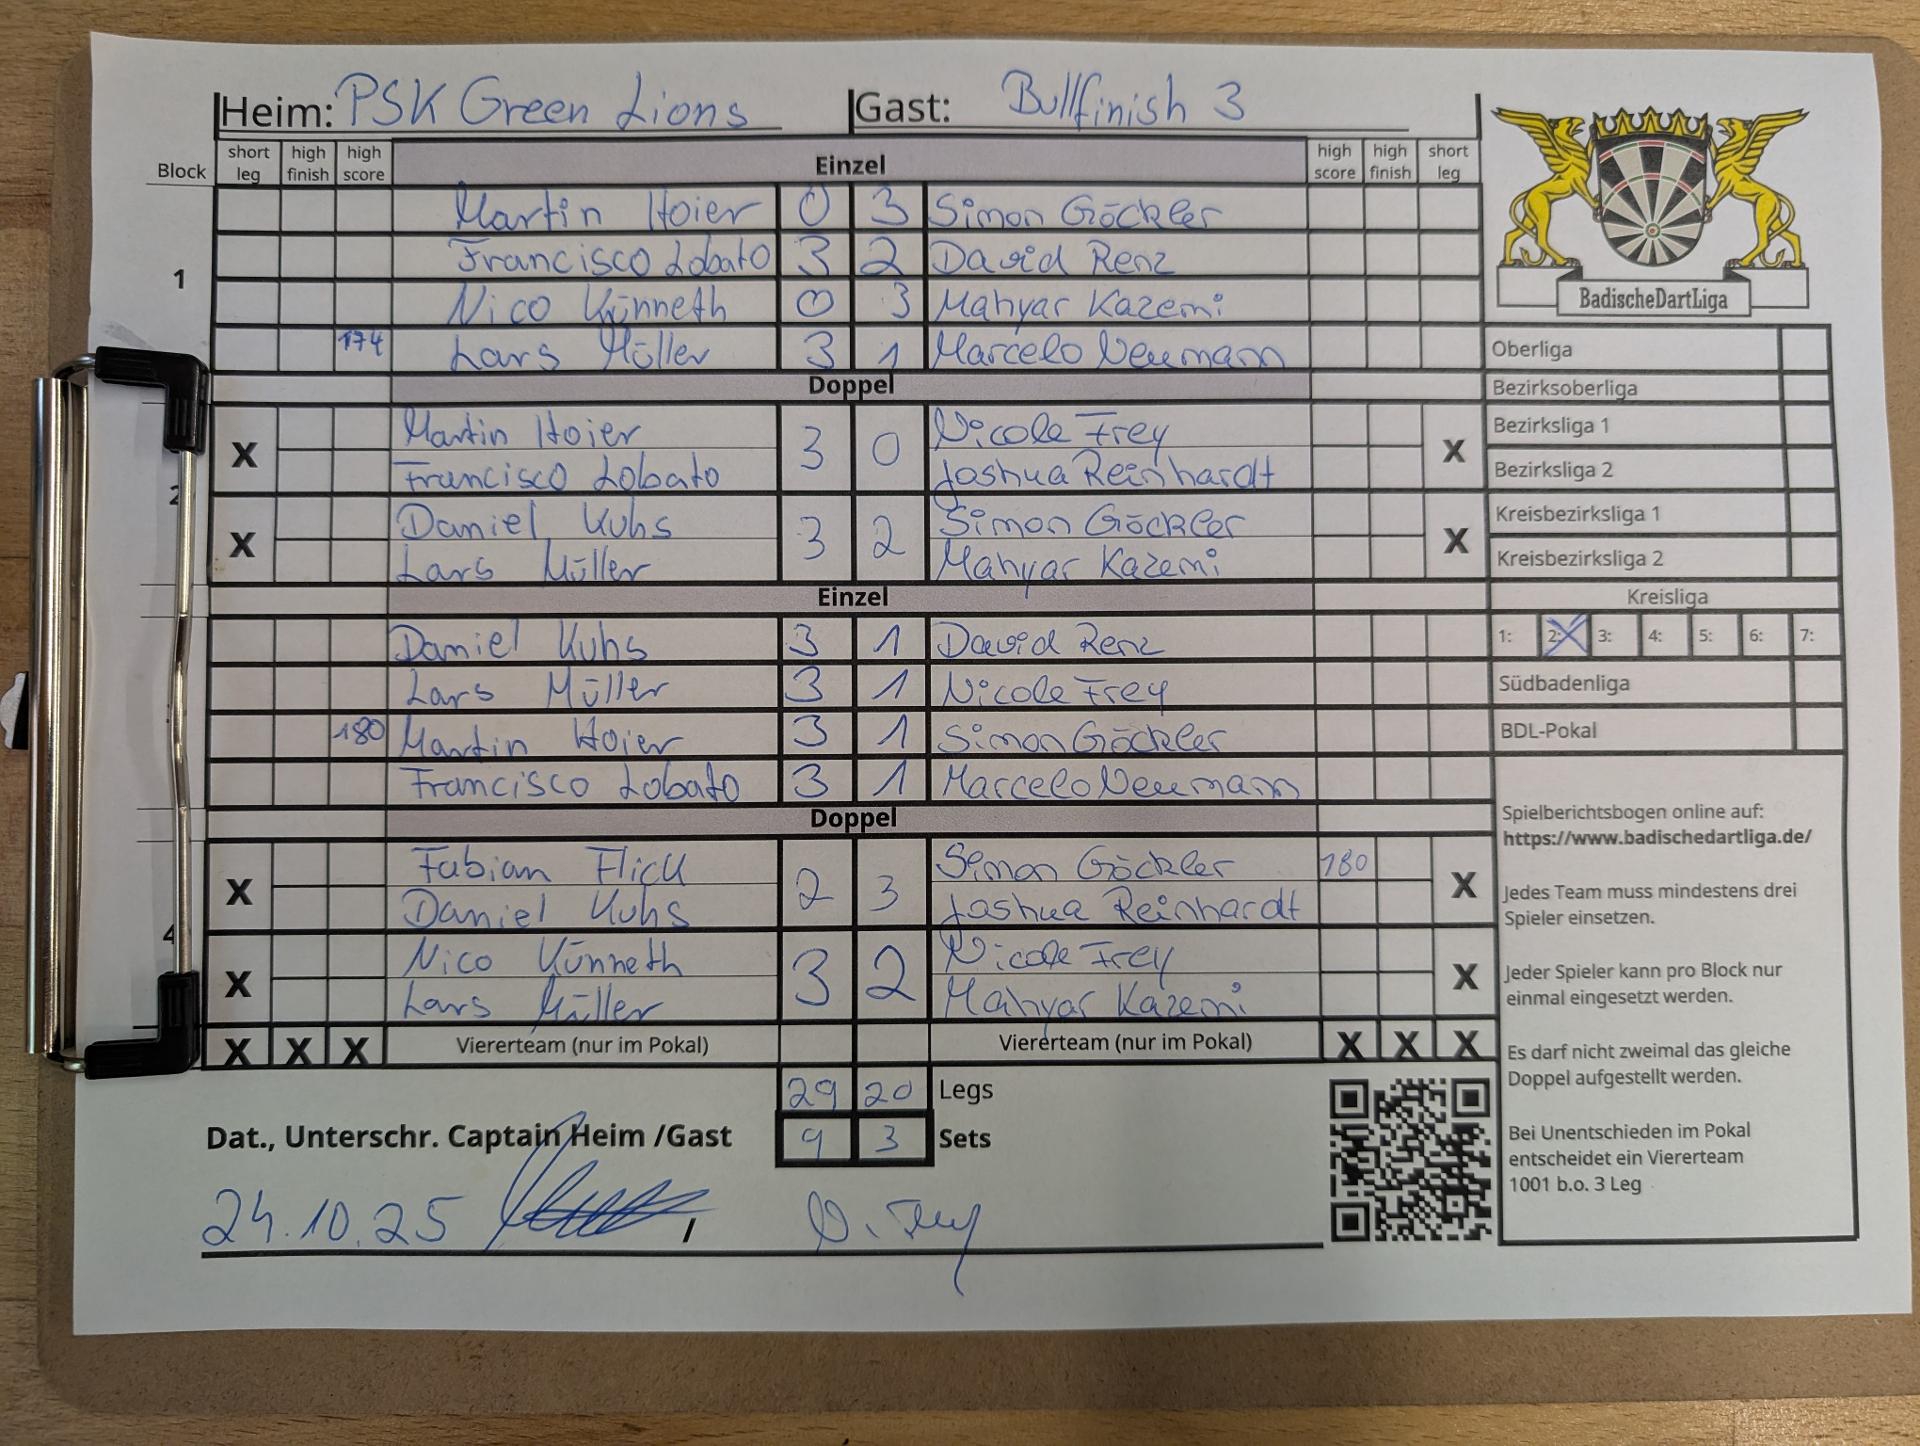 Heim: PSK Green Lions Gast: Bullfinish 3
Block short leg high finish high score Einzel high score high finish short leg
Martin Hoier 0 3 Simon Göckler
Francisco Lobato 3 2 David Renz
1
Nico Künneth 0 3 Mahyar Kazemi
174 Lars Müller 3 1 Marcelo Neumann
Doppel
Martin Hoier Nicole Frey
X 3 0 X
Francisco Lobato Joshua Reinhardt
2
Daniel Kuhs Simon Göckler
X 3 2 X
Lars Müller Mahyar Kazemi
Einzel
Daniel Kuhs 3 1 David Renz
Lars Müller 3 1 Nicole Frey
180 Martin Hoier 3 1 Simon Göckler
Francisco Lobato 3 1 Marcelo Neumann
Doppel
Fabian Flick Simon Göckler 180
X 2 3 X
Daniel Kuhs Joshua Reinhardt
4
Nico Künneth Nicole Frey
X 3 2 X
Lars Müller Mahyar Kazemi
X X X Viererteam (nur im Pokal) Viererteam (nur im Pokal) X X X
29 20 Legs
Dat., Unterschr. Captain Heim /Gast 9 3 Sets
24.10.25 / N. Frey
BadischeDartLiga
Oberliga
Bezirksoberliga
Bezirksliga 1
Bezirksliga 2
Kreisbezirksliga 1
Kreisbezirksliga 2
Kreisliga
1: 2: X 3: 4: 5: 6: 7:
Südbadenliga
BDL-Pokal
Spielberichtsbogen online auf:
https://www.badischedartliga.de/
Jedes Team muss mindestens drei
Spieler einsetzen.
Jeder Spieler kann pro Block nur
einmal eingesetzt werden.
Es darf nicht zweimal das gleiche
Doppel aufgestellt werden.
Bei Unentschieden im Pokal
entscheidet ein Viererteam
1001 b.o. 3 Leg